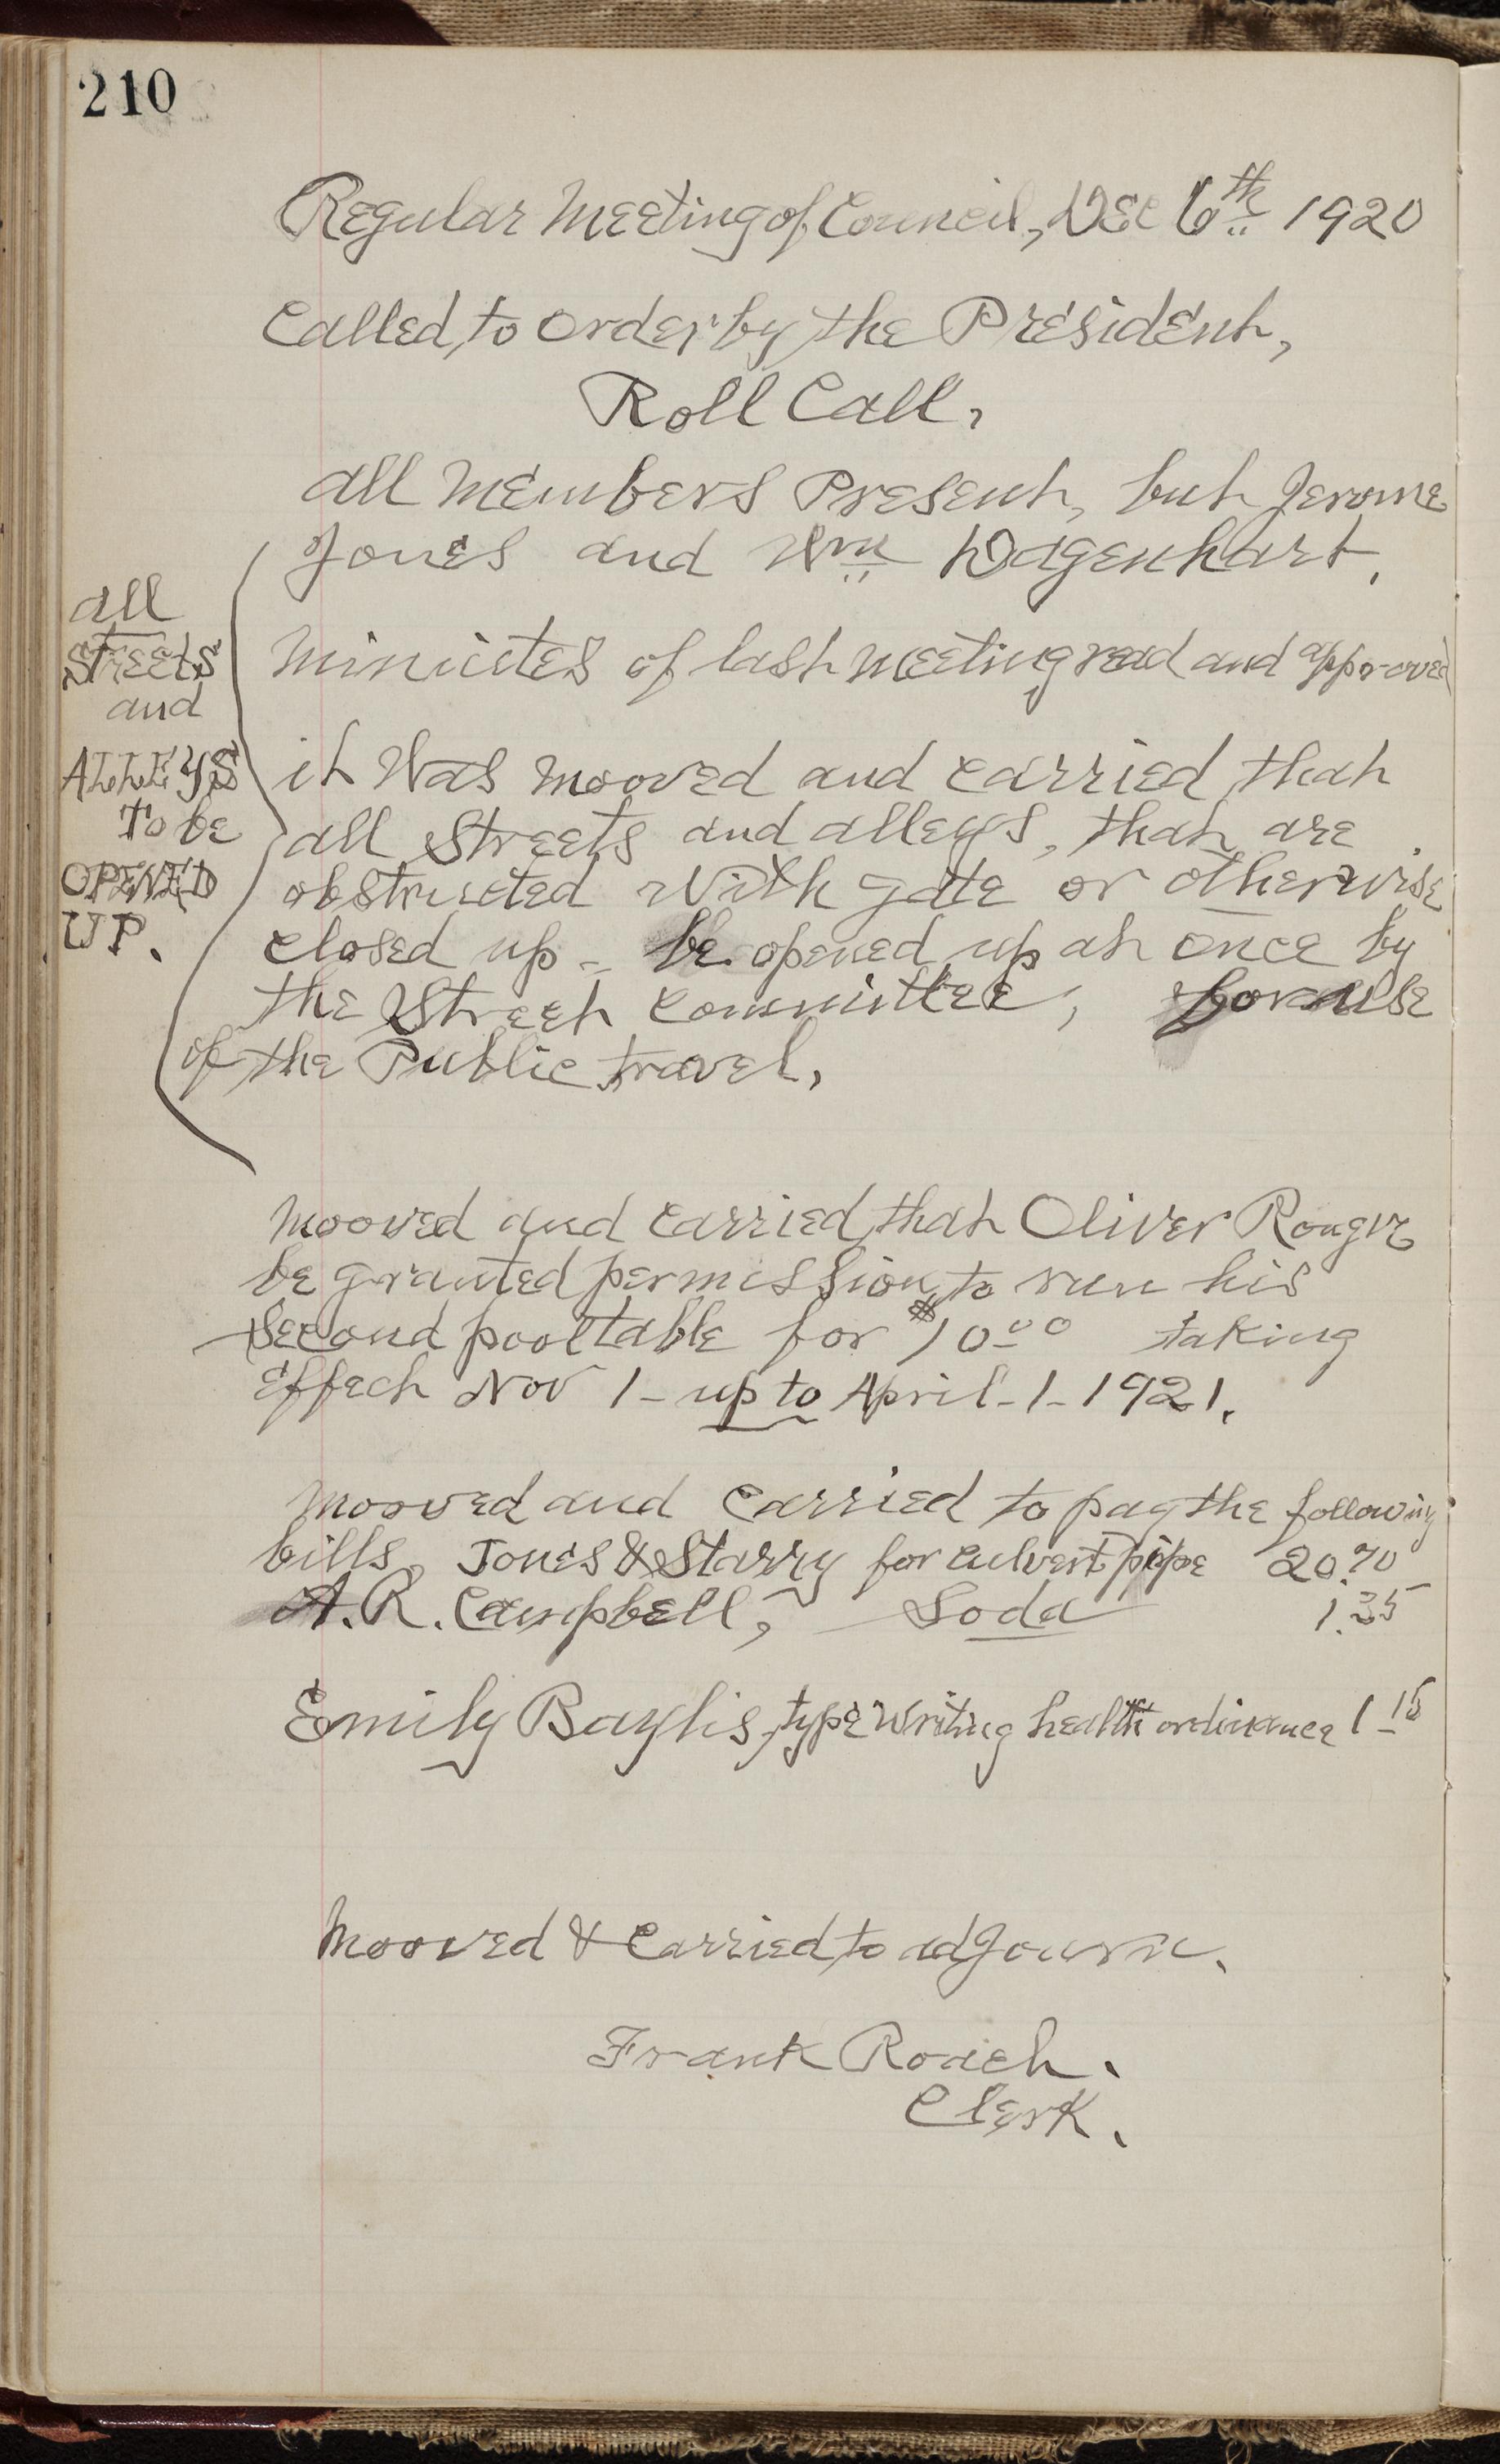 210
Regular Meeting of Council, Dec 6th 1920
Called to order by the President,
Roll Call,
all members Present, but Jerome
Jones and Wm Wagenhart.
all
streets
and
ALLEYS
To be
OPENED
UP.
minutes of last meeting read and approved
it Was mooved and carried that
all streets and alleys, that are
obstructed with gate or otherwise
closed up - be opened up at once by
the Street committee, for use
of the Public travel,
mooved and carried that Oliver
be granted permission to run his
second pool table for $10.00 taking
effect Nov 1 - up to April - 1 - 1921.
mooved and carried to pay the following
bills, Jones & Starry for culvert pipe 20.70
A. R. Campbell, Soda 1.35
Emily Baylis, typewriting health ordinance 1.15
mooved & carried to adjourn.
Frank Roach.
Clerk.